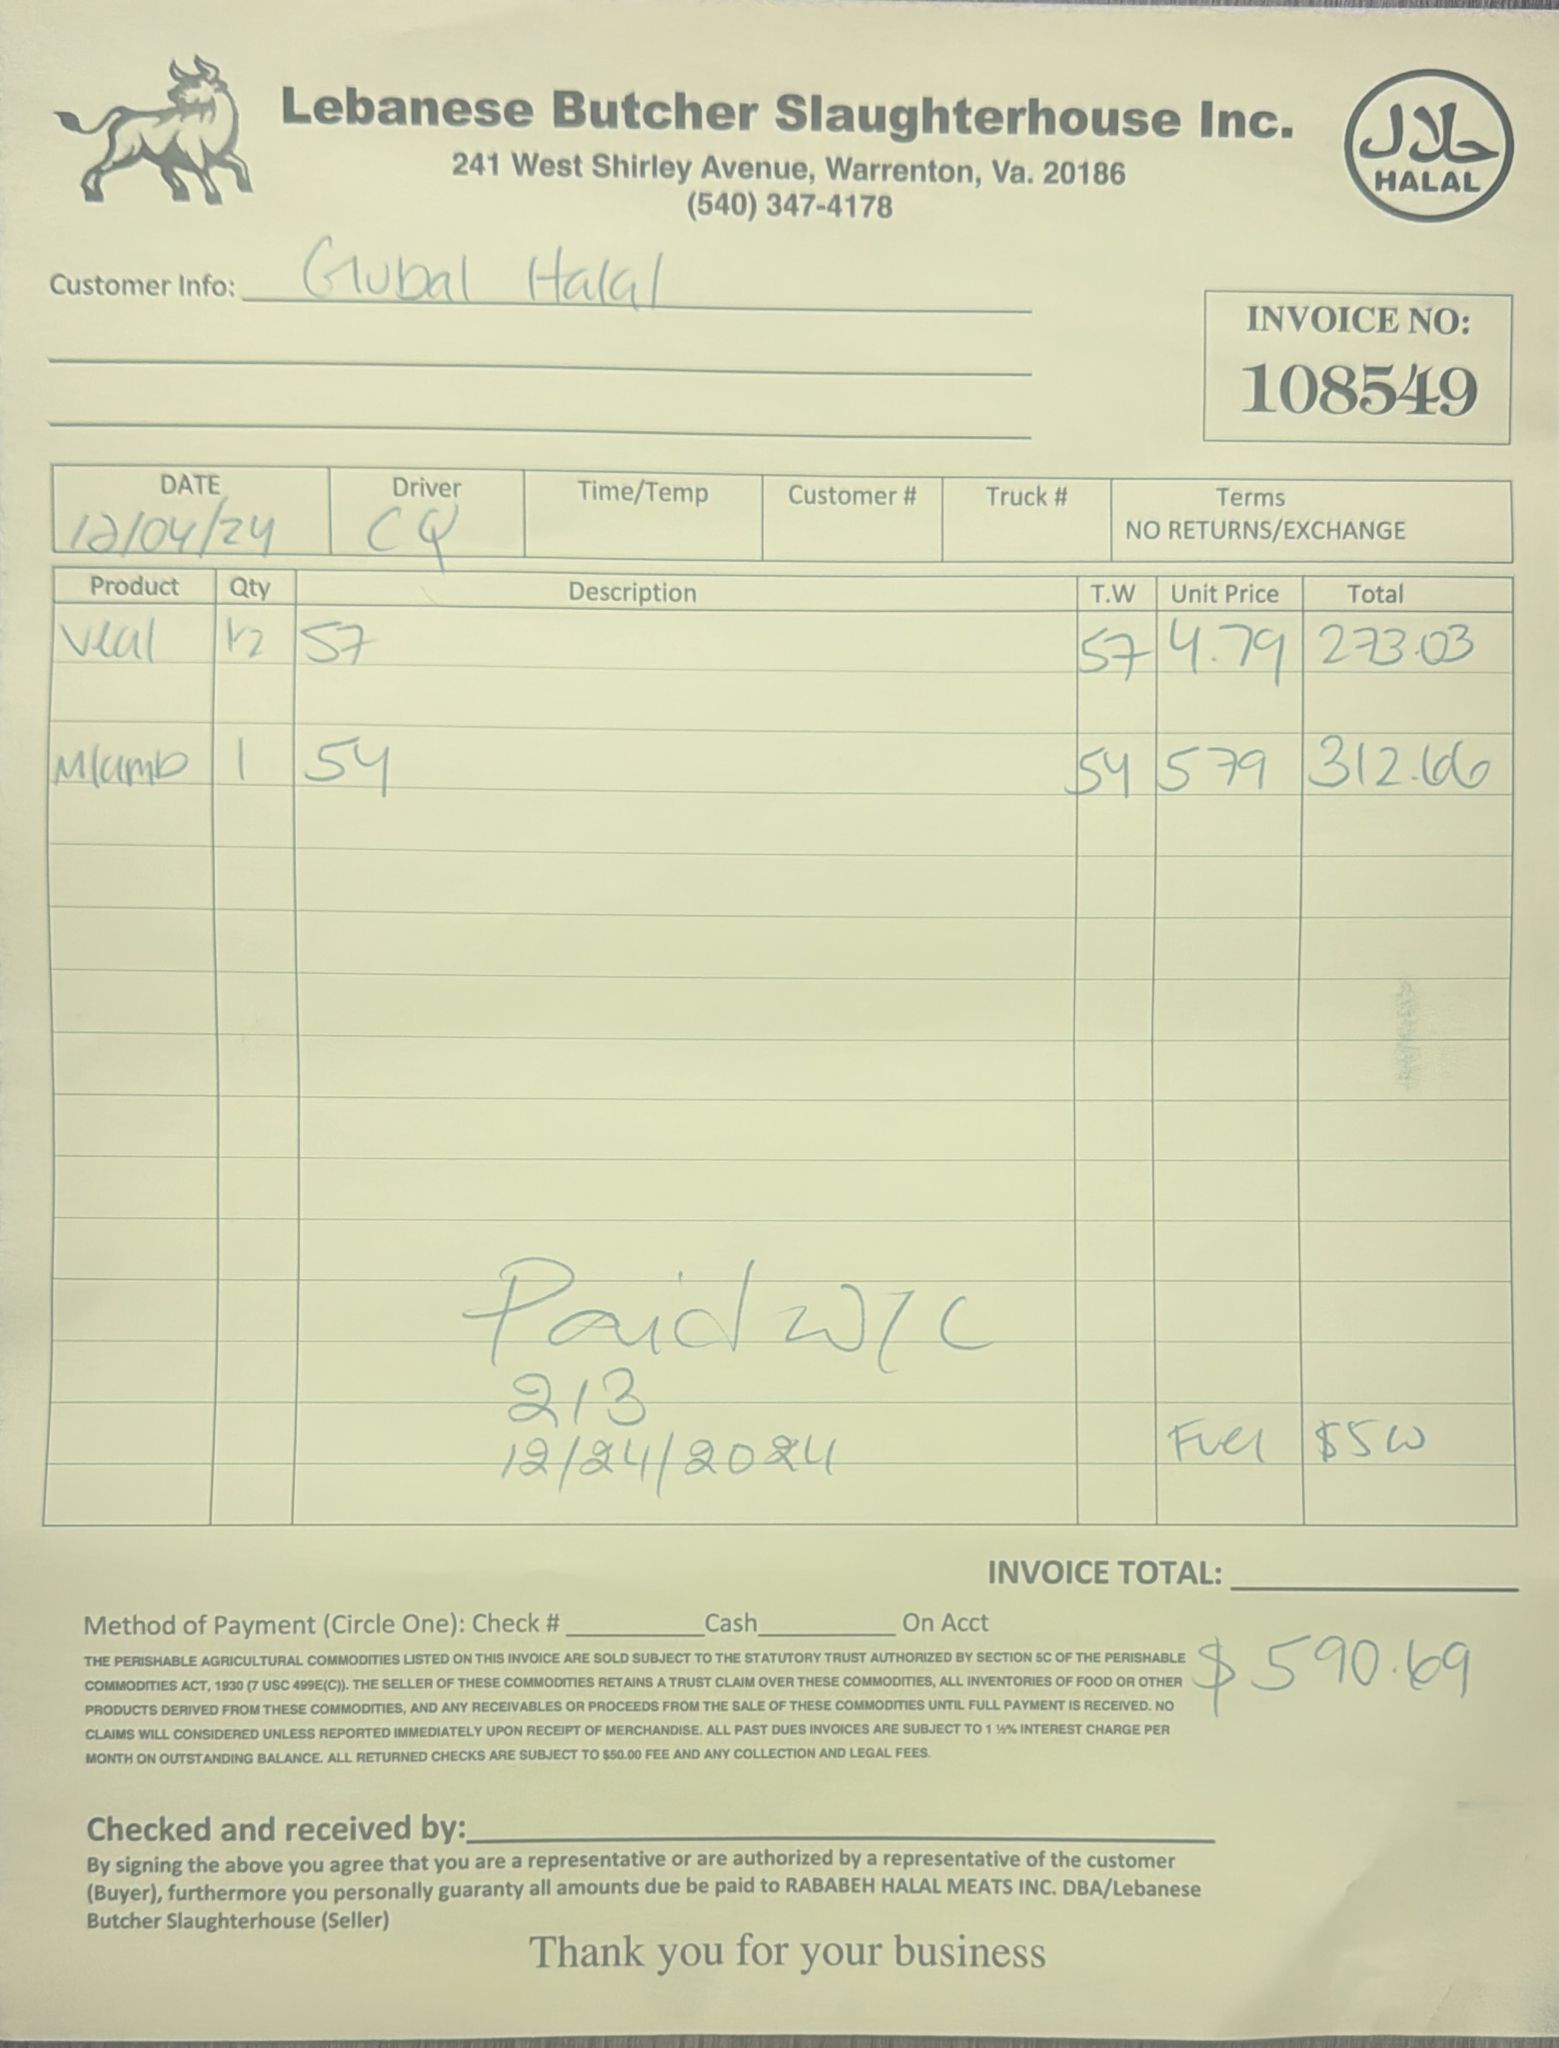 Lebanese Butcher Slaughterhouse Inc.
241 West Shirley Avenue, Warrenton, Va. 20186
(540) 347-4178
حلال
HALAL
Customer Info: Glubal Halal
INVOICE NO:
108549
DATE Driver Time/Temp Customer # Truck # Terms
12/04/24 CQ NO RETURNS/EXCHANGE
Product Qty Description T.W Unit Price Total
Veal 1/2 57 57 4.79 273.03
M/amb 1 54 54 579 312.66
Paid W/C
213
12/24/2024
Fuel $500
INVOICE TOTAL:
Method of Payment (Circle One): Check # Cash On Acct
$590.69
THE PERISHABLE AGRICULTURAL COMMODITIES LISTED ON THIS INVOICE ARE SOLD SUBJECT TO THE STATUTORY TRUST AUTHORIZED BY SECTION 5C OF THE PERISHABLE
COMMODITIES ACT, 1930 (7 USC 499E(C)). THE SELLER OF THESE COMMODITIES RETAINS A TRUST CLAIM OVER THESE COMMODITIES, ALL INVENTORIES OF FOOD OR OTHER
PRODUCTS DERIVED FROM THESE COMMODITIES, AND ANY RECEIVABLES OR PROCEEDS FROM THE SALE OF THESE COMMODITIES UNTIL FULL PAYMENT IS RECEIVED. NO
CLAIMS WILL CONSIDERED UNLESS REPORTED IMMEDIATELY UPON RECEIPT OF MERCHANDISE. ALL PAST DUES INVOICES ARE SUBJECT TO 1 ½% INTEREST CHARGE PER
MONTH ON OUTSTANDING BALANCE. ALL RETURNED CHECKS ARE SUBJECT TO $50.00 FEE AND ANY COLLECTION AND LEGAL FEES.
Checked and received by:
By signing the above you agree that you are a representative or are authorized by a representative of the customer
(Buyer), furthermore you personally guaranty all amounts due be paid to RABABEH HALAL MEATS INC. DBA/Lebanese
Butcher Slaughterhouse (Seller)
Thank you for your business